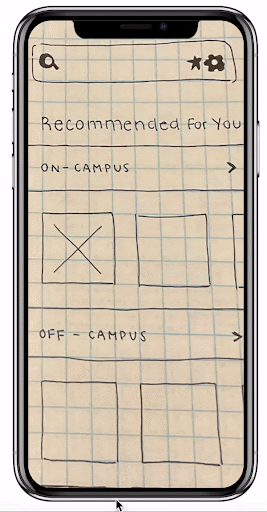 Recommended For You
ON-CAMPUS
OFF - CAMPUS